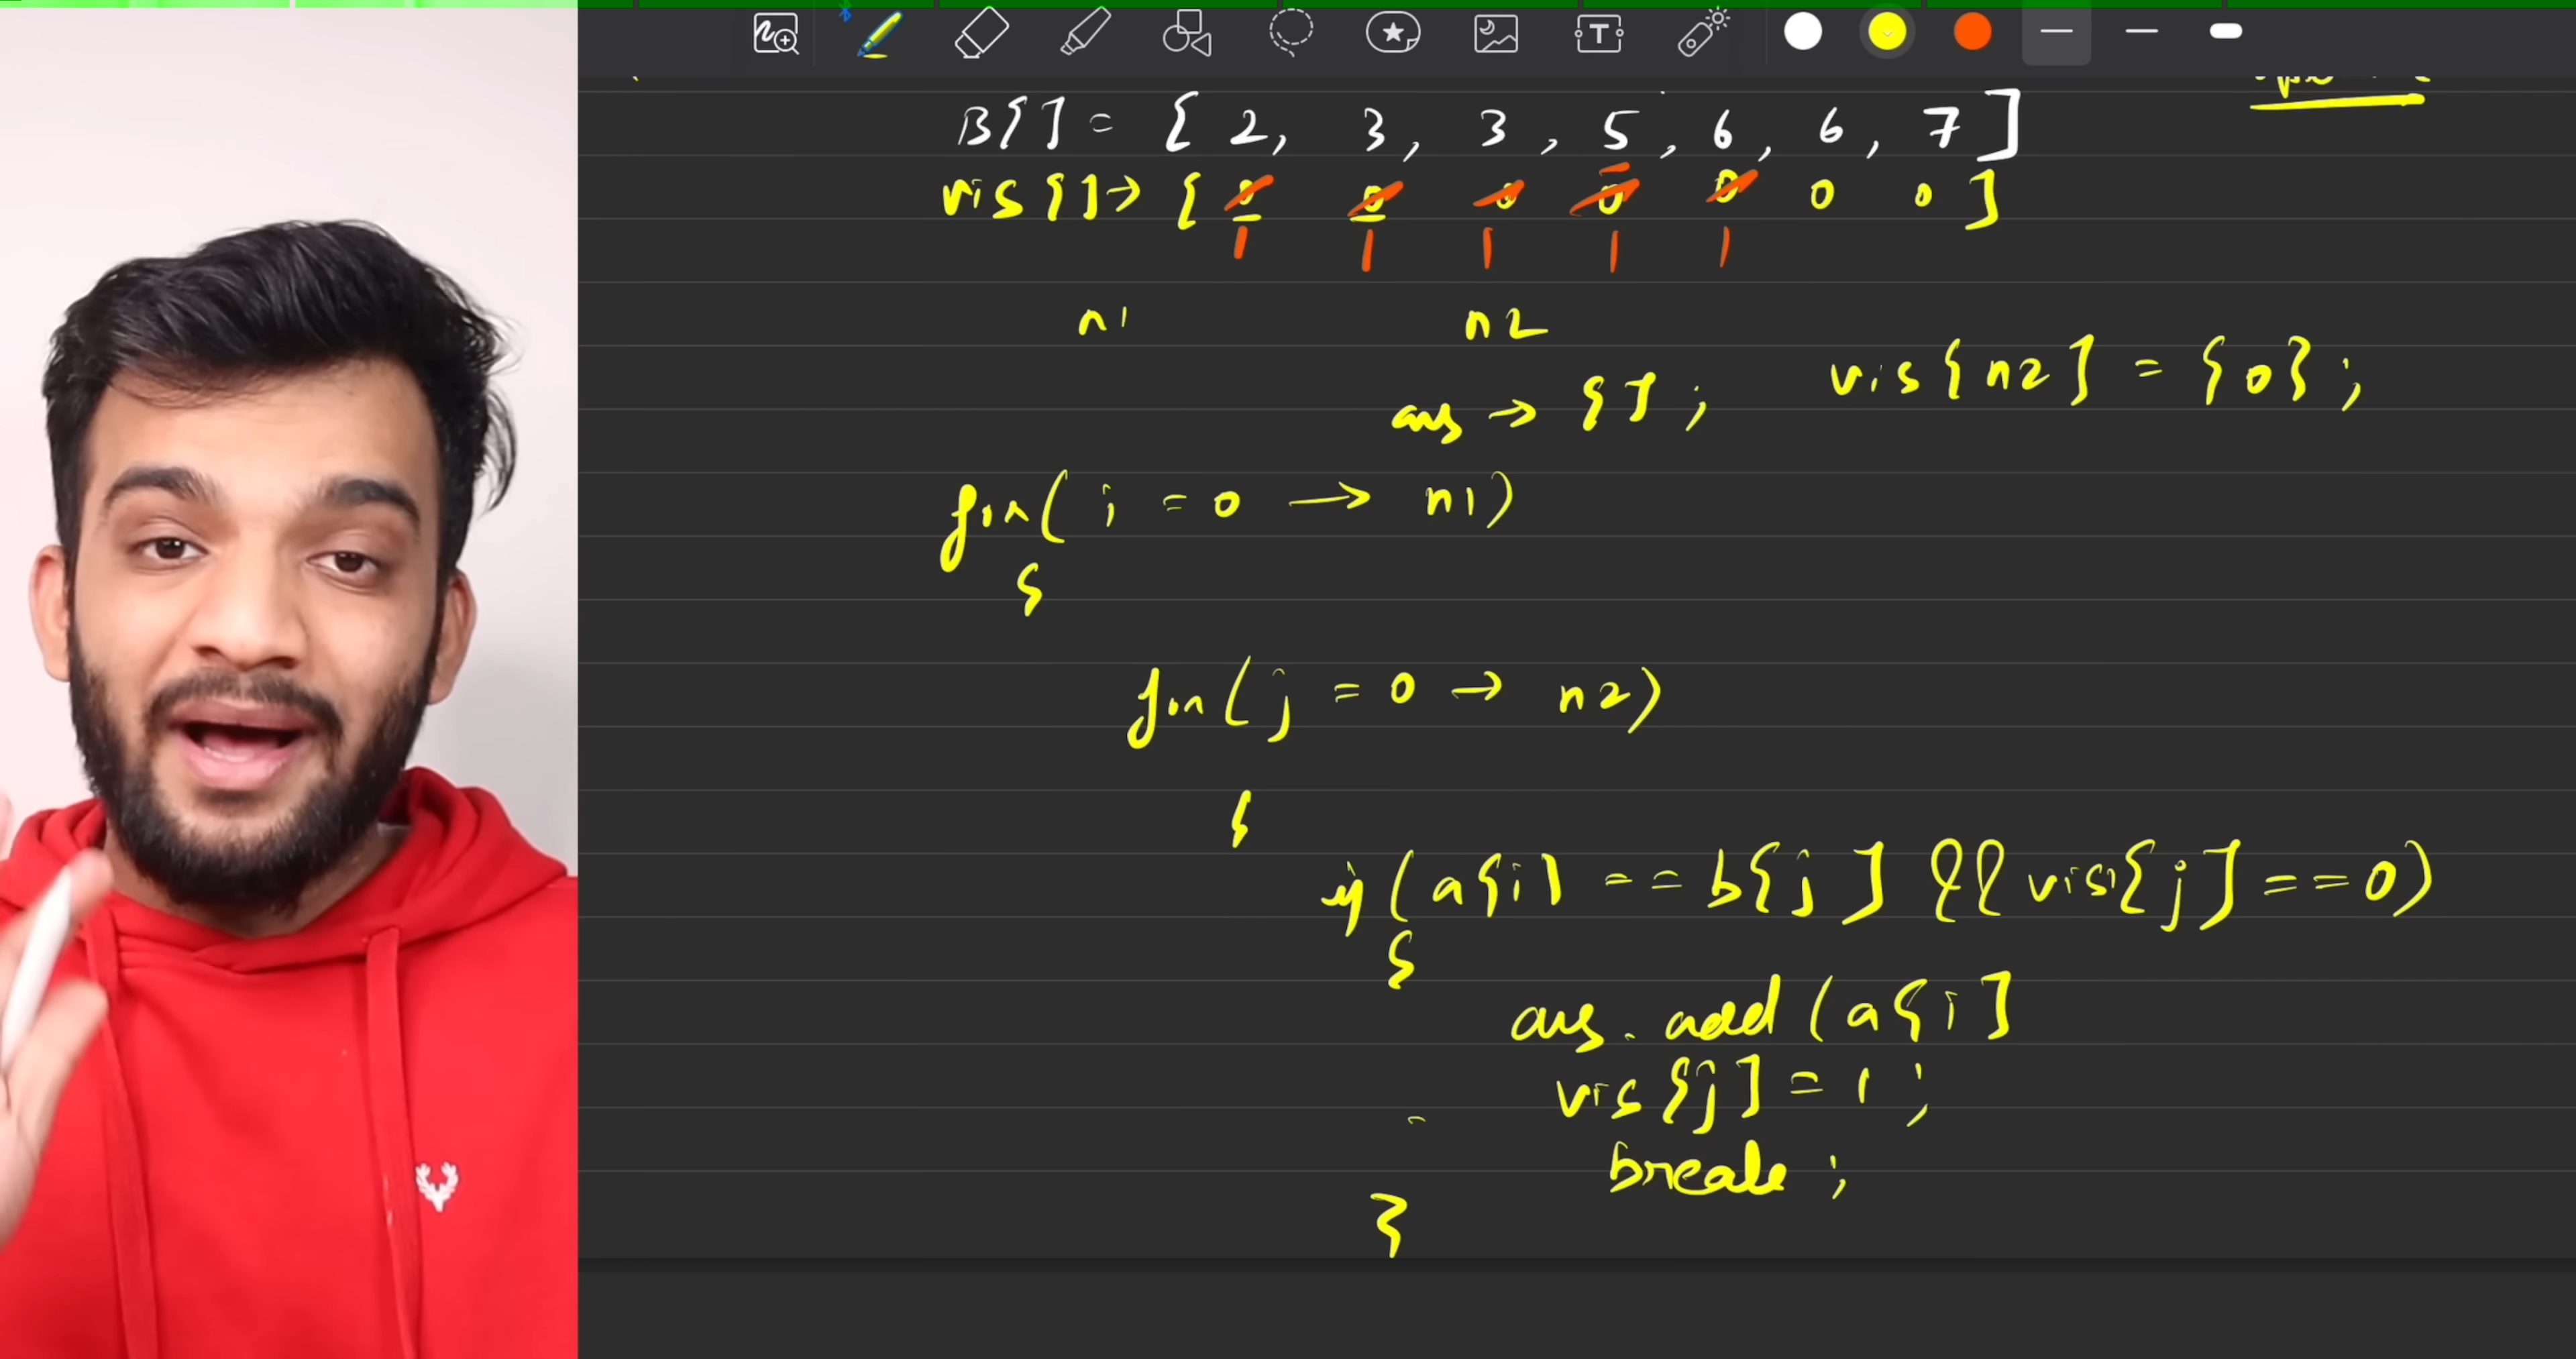 B[] = [ 2, 3, 3, 5, 6, 6, 7 ]
vis[] → [ 0 0 0 0 0 0 0 ]
1 1 1 1 1
n1 n2
ans → []; vis[n2] = {0};
for( i = 0 → n1)
{
for( j = 0 → n2)
{
if( a[i] == b[j] && vis[j] == 0)
{
ans. add ( a[i]
vis[j] = 1 ;
break ;
}